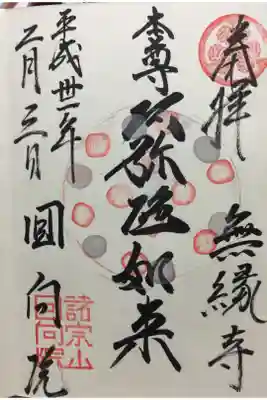 奉拝　無縁寺
本尊　阿弥陀如来
平成卅一年
二月三日　回向院
諸宗山
回向院